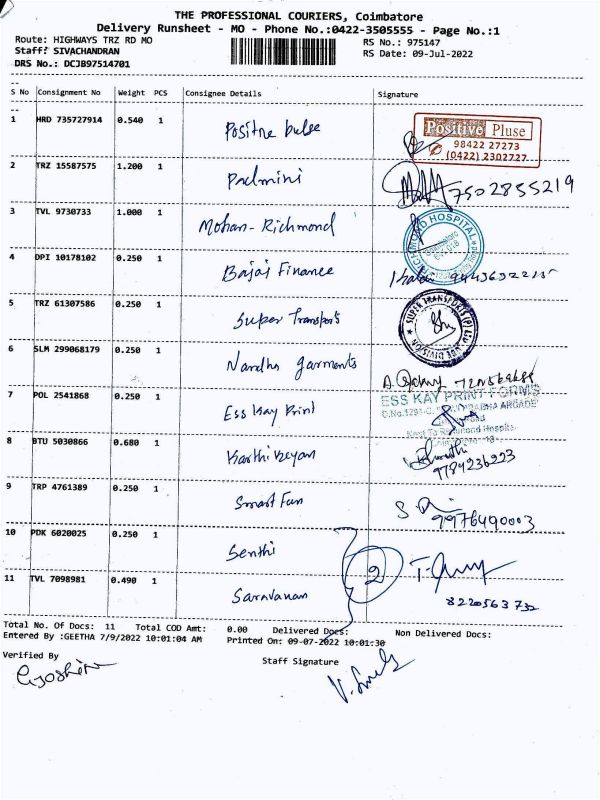 THE PROFESSIONAL COURIERS, Coimbatore
Delivery Runsheet - MO - Phone No.:0422-3505555 - Page No.:1
Route: HIGHWAYS TRZ RD MO
RS No.: 975147
Staff: SIVACHANDRAN
RS Date: 09-Jul-2022
DRS No.: DCJB97514701
S No Consignment No Weight PCS Consignee Details Signature
1 HRD 735727914 0.540 1 Positive pulse
Positive Pluse
98422 27273
(0422) 2302727
2 TRZ 15587575 1.200 1 Padmini 7502855219
3 TVL 9730733 1.000 1 Mohan-Richmond
RICHMOND HOSPITAL
4 DPI 10178102 0.250 1 Bajaj Finance
5 TRZ 61307586 0.250 1 Super Transports
SUPER TRANSPORTS (P) LTD
6 SLM 299068179 0.250 1 Nandhu garments
7 POL 2541868 0.250 1 Ess Kay Print
ESS KAY PRINT FORMS
Next To Richmond Hospital
8 BTU 5030866 0.680 1 Karthikeyan
9784236223
9 TRP 4761389 0.250 1 Smart Fun
9976490003
10 PDK 6020025 0.250 1 Senthi
2
11 TVL 7098981 0.490 1 Saravanan
8220563732
Total No. Of Docs: 11 Total COD Amt: 0.00 Delivered Docs: Non Delivered Docs:
Entered By :GEETHA 7/9/2022 10:01:04 AM Printed On: 09-07-2022 10:01:30
Verified By Staff Signature